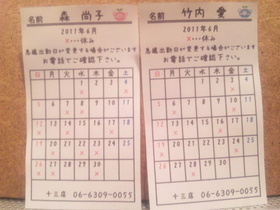 名前 森 尚子
2011年6月
×…休み
急遽出勤日が変更する場合がございます
お電話でご確認下さい。
日 月 火 水 木 金 土
1 2 3 4
5 6 7 8 9 10 11
12 13 14 15 16 17 18
19 20 21 22 23 24 25
26 27 28 29 30
十三店 06-6309-0055
名前 竹内 愛
2011年6月
×…休み
急遽出勤日が変更する場合がございます
お電話でご確認下さい。
日 月 火 水 木 金 土
1 2 3 4
5 6 7 8 9 10 11
12 13 14 15 16 17 18
19 20 21 22 23 24 25
26 27 28 29 30
十三店 06-6309-0055